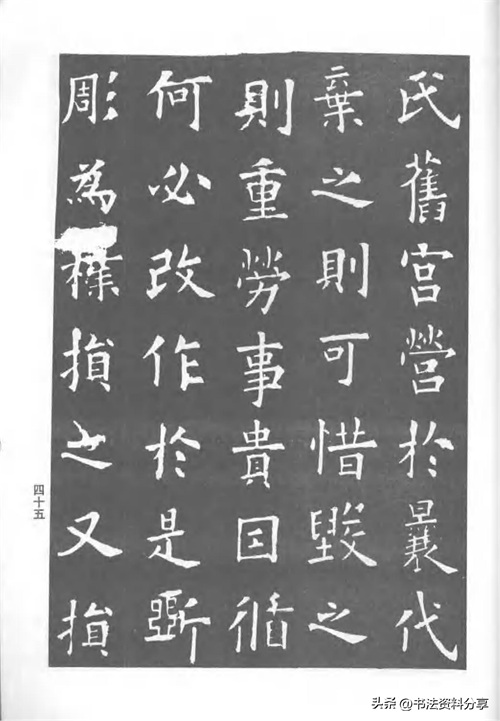 氏舊宮營於曩代
棄之則可惜毀之
則重勞事貴因循
何必改作於是斵
彫為樸損之又損
四十五
头条@书法资料分享